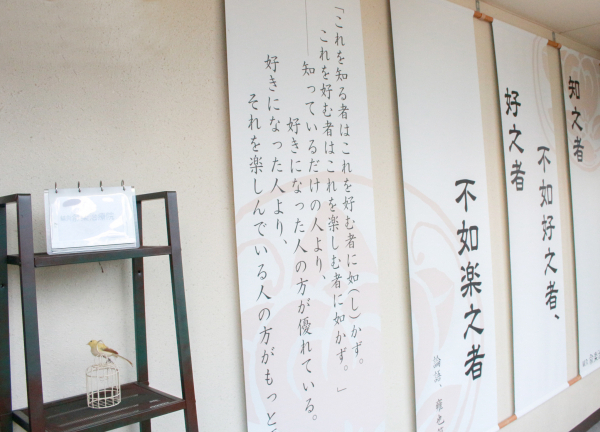 知之者
不如好之者、
好之者
不如楽之者
論語 雍也
「これを知る者はこれを好む者に如(し)かず。
これを好む者はこれを楽しむ者に如かず。」
――知っているだけの人より、
好きになった人の方が優れている。
好きになった人より、
それを楽しんでいる人の方がもっと